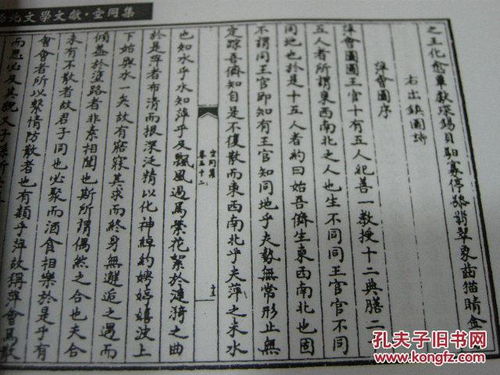 北文學文獻·空同集
之王化愈單獻琛錫貝馴象停黎翡翠象齒猫睛金
右出鎮圖詩
萍會圖序
萍會圖圖王官十有五人祀善一教授十二典膳二
五人者所謂東西南北之人也生不同同王官官不同
同地也於是十五人者約曰始吾儕生東西南北也固
不謂同王官即知有王官知同地乎夫勢無常形止無
定踪吾儕知自是不復散而東西南北乎夫萍之未水
空同集
卷五十二
也知水乎水知萍乎及飄風過焉縈花絮於漣漪之曲
於是萍者布清而根深泛精以化神綽約娉婷嬉波上
下始與水一矣故有寤寐其求而終身無邂逅之遇而
傾蓋於塗路者非素相聞也斯所謂偶然之合也夫合
未有不散者故君子同也必聚而酒食相樂於是乎有
會會者所以繫情防散者也有類乎萍故稱萍會焉故
孔夫子旧书网
www.kongfz.com